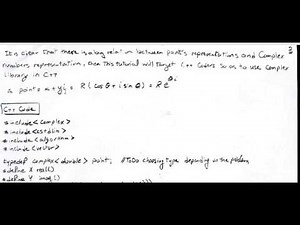 It is clear that there is a big relation between points representations and Complex
numbers representation, then this tutorial will target C++ Coders so as to use Complex
library in C++
a point = x+yi = R(cosθ+isinθ) = Re^θi
C++ Code
#include<complex>
#include<cstdlib>
#include<algorithm>
#include<vector>
typedef complex<double> point; //ToDo choosing type depending on the problem
#define X real()
#define Y imag()